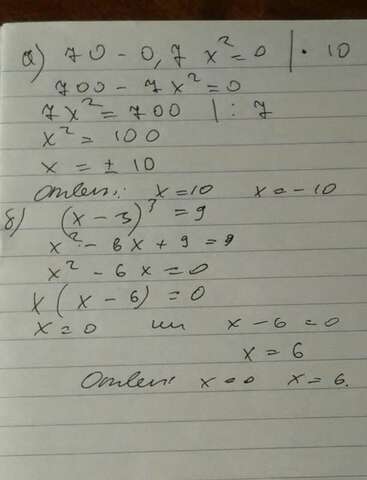 а) 70 - 0,7 x² = 0 | · 10
700 - 7x² = 0
7x² = 700 | : 7
x² = 100
x = ± 10
Ответ: x = 10 x = - 10
б) (x - 3)² = 9
x² - 6x + 9 = 9
x² - 6x = 0
x (x - 6) = 0
x = 0 или x - 6 = 0
x = 6
Ответ: x = 0 x = 6.